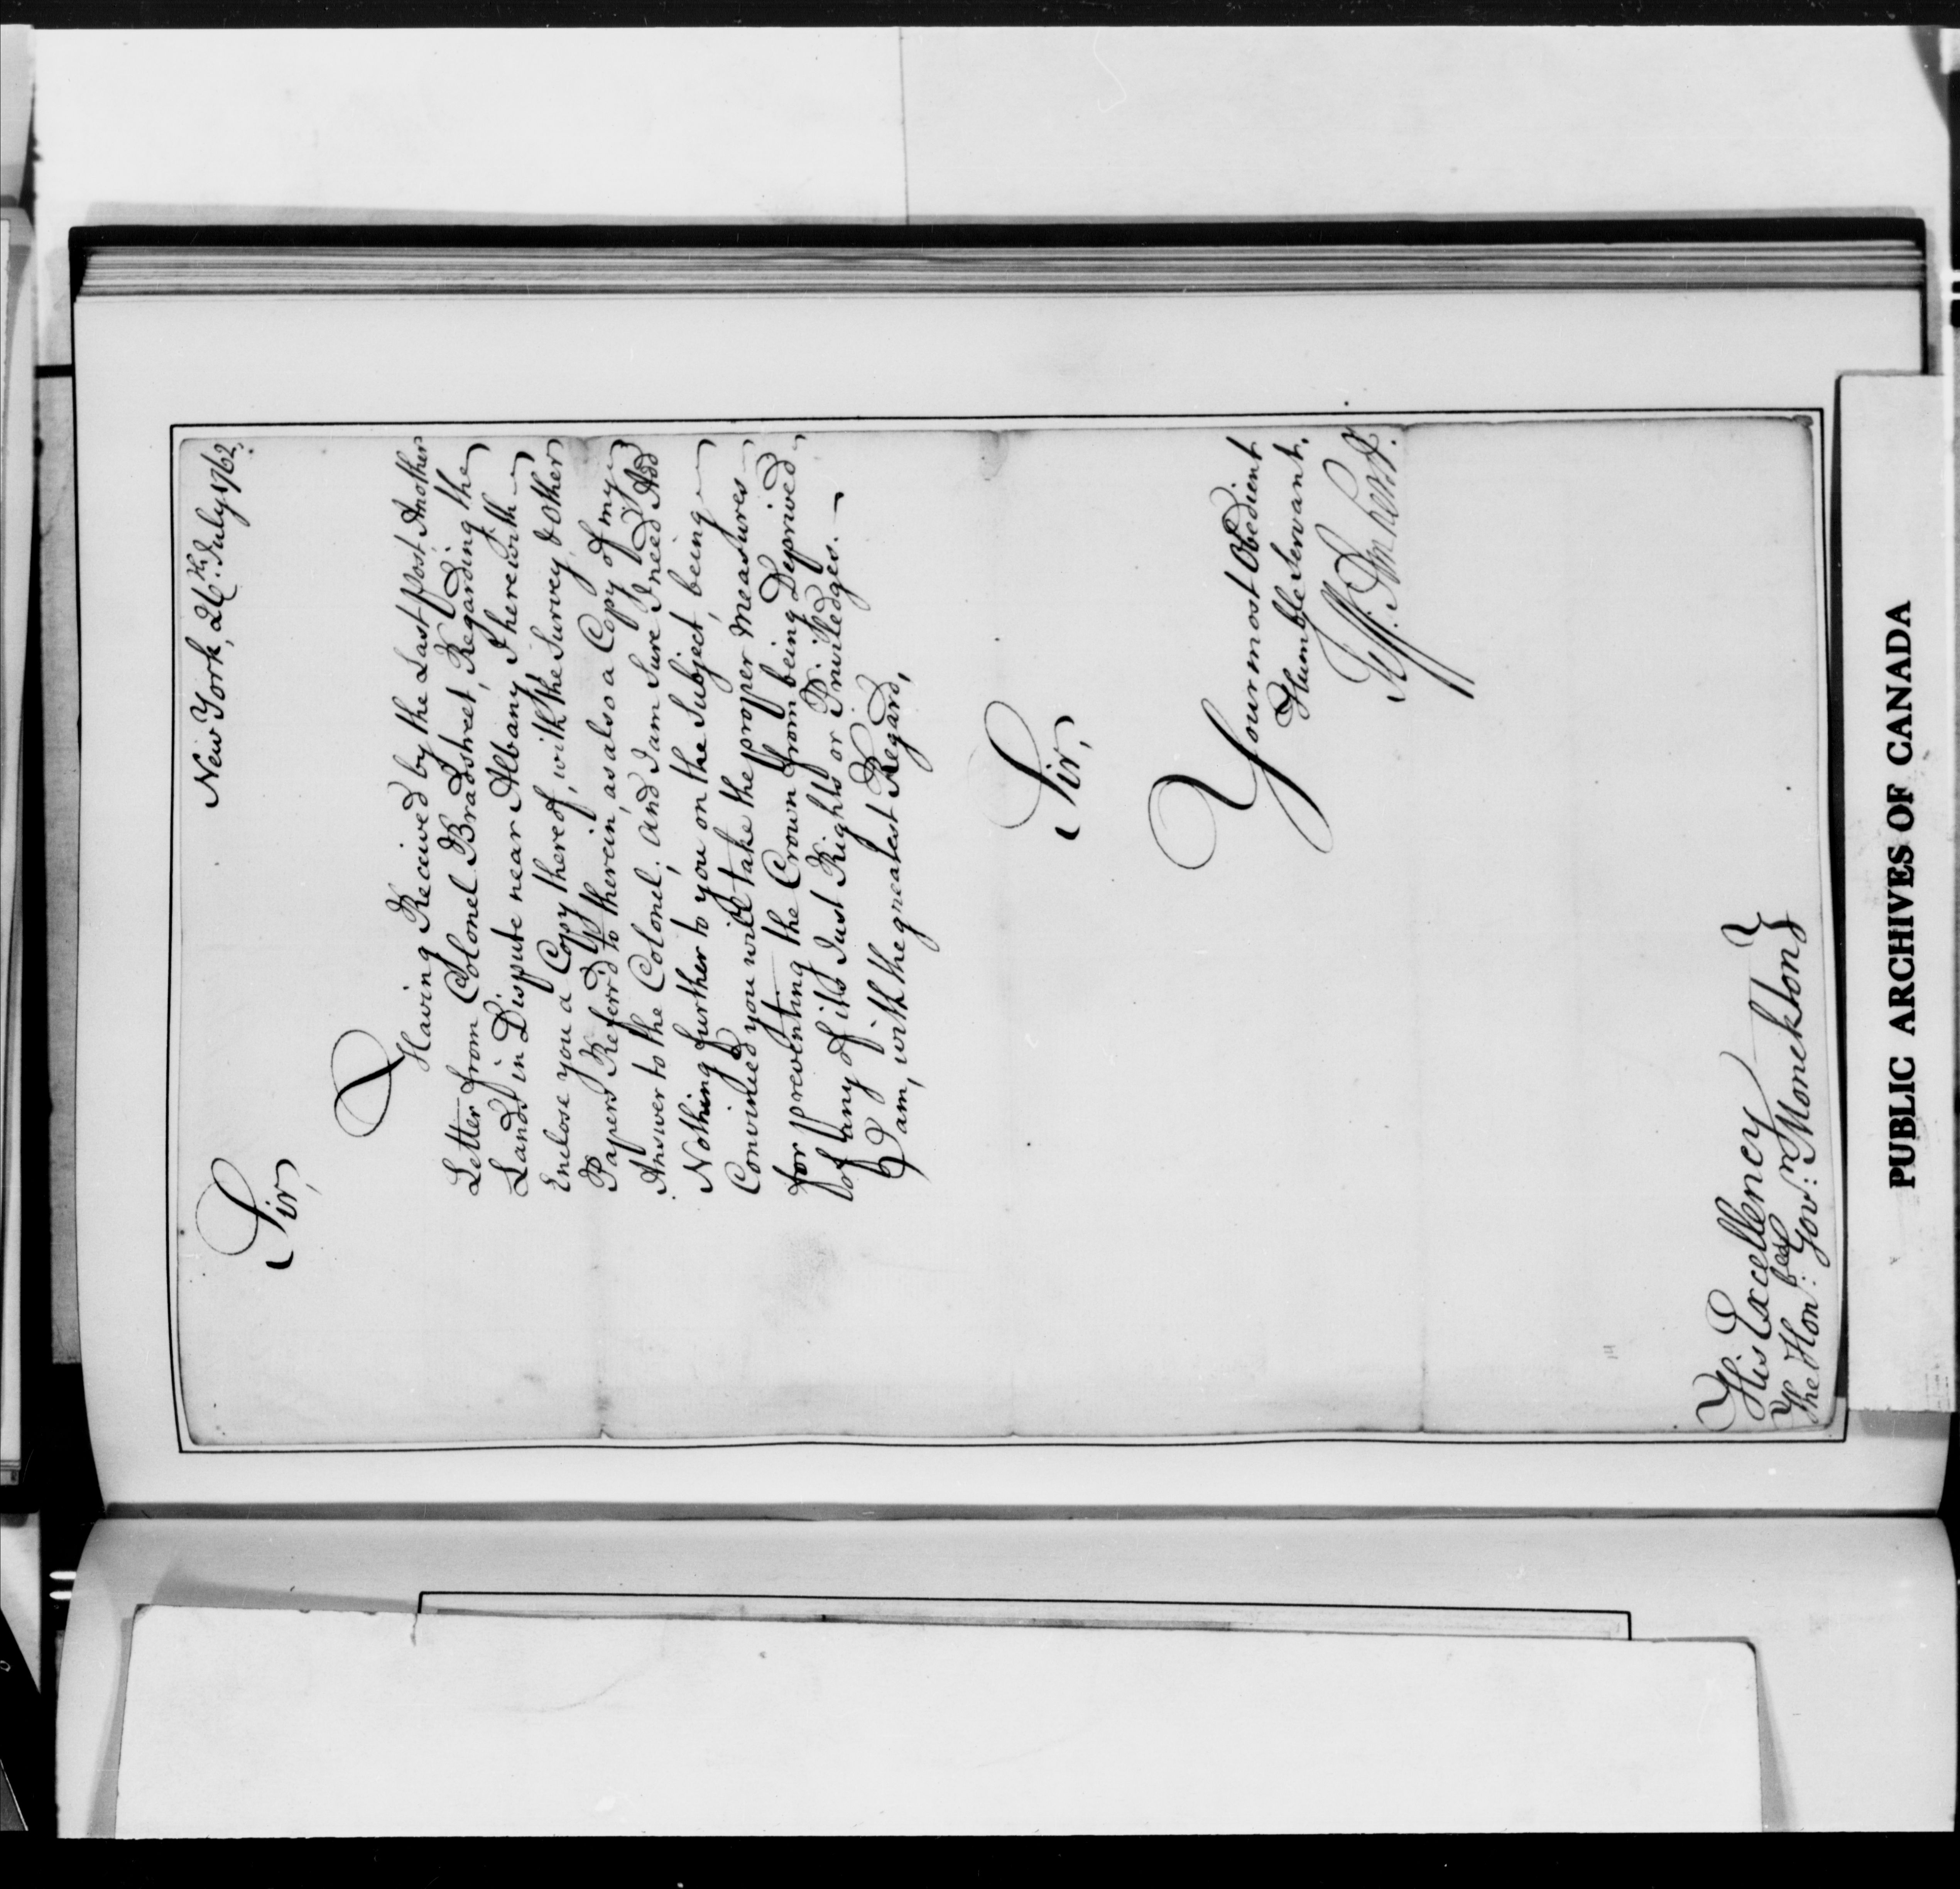 New York, 26th: July 1762.
Sir,
Having Received by the Last post, Another
Letter from Colonel Bradstreet, Regarding the
Lands in Dispute near Albany, I herewith
Enclose you a Copy thereof, with the Survey, & Other
Papers Referr'd to therein, as also a Copy of my
Answer to the Colonel; And I am Sure I need Add
Nothing further to you on the Subject, being
Convinced you will take the proper Measures
for preventing the Crown from being Deprived
of any of its Just Rights or Priviledges. —
I am, with the greatest Regard,
Sir,
Your most Obedient
Humble Servant,
Jeff: Amherst.
His Excellency
The Honble: Govr: Monckton
PUBLIC ARCHIVES OF CANADA